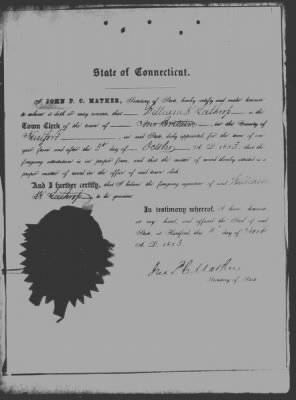 State of Connecticut.
I, JOHN P. C. MATHER, Secretary of State, hereby certify and make known
to whom it doth or may concern, that William Lathrop is the
Town Clerk of the town of in the County of
in said State, duly appointed for the term of one
year from and after the 3d day of October A. D. 1853, that the
foregoing attestation is in proper form, and that the matter of record thereby attested is a
proper matter of record in the office of said town clerk.
And I further certify, that I believe the foregoing signature of said William
Lathrop to be genuine
In testimony whereof, I have hereunto
set my hand, and affixed the Seal of said
State, at Hartford, this day of
A. D. 1853.
Jno P. C. Mather
Secretary of State